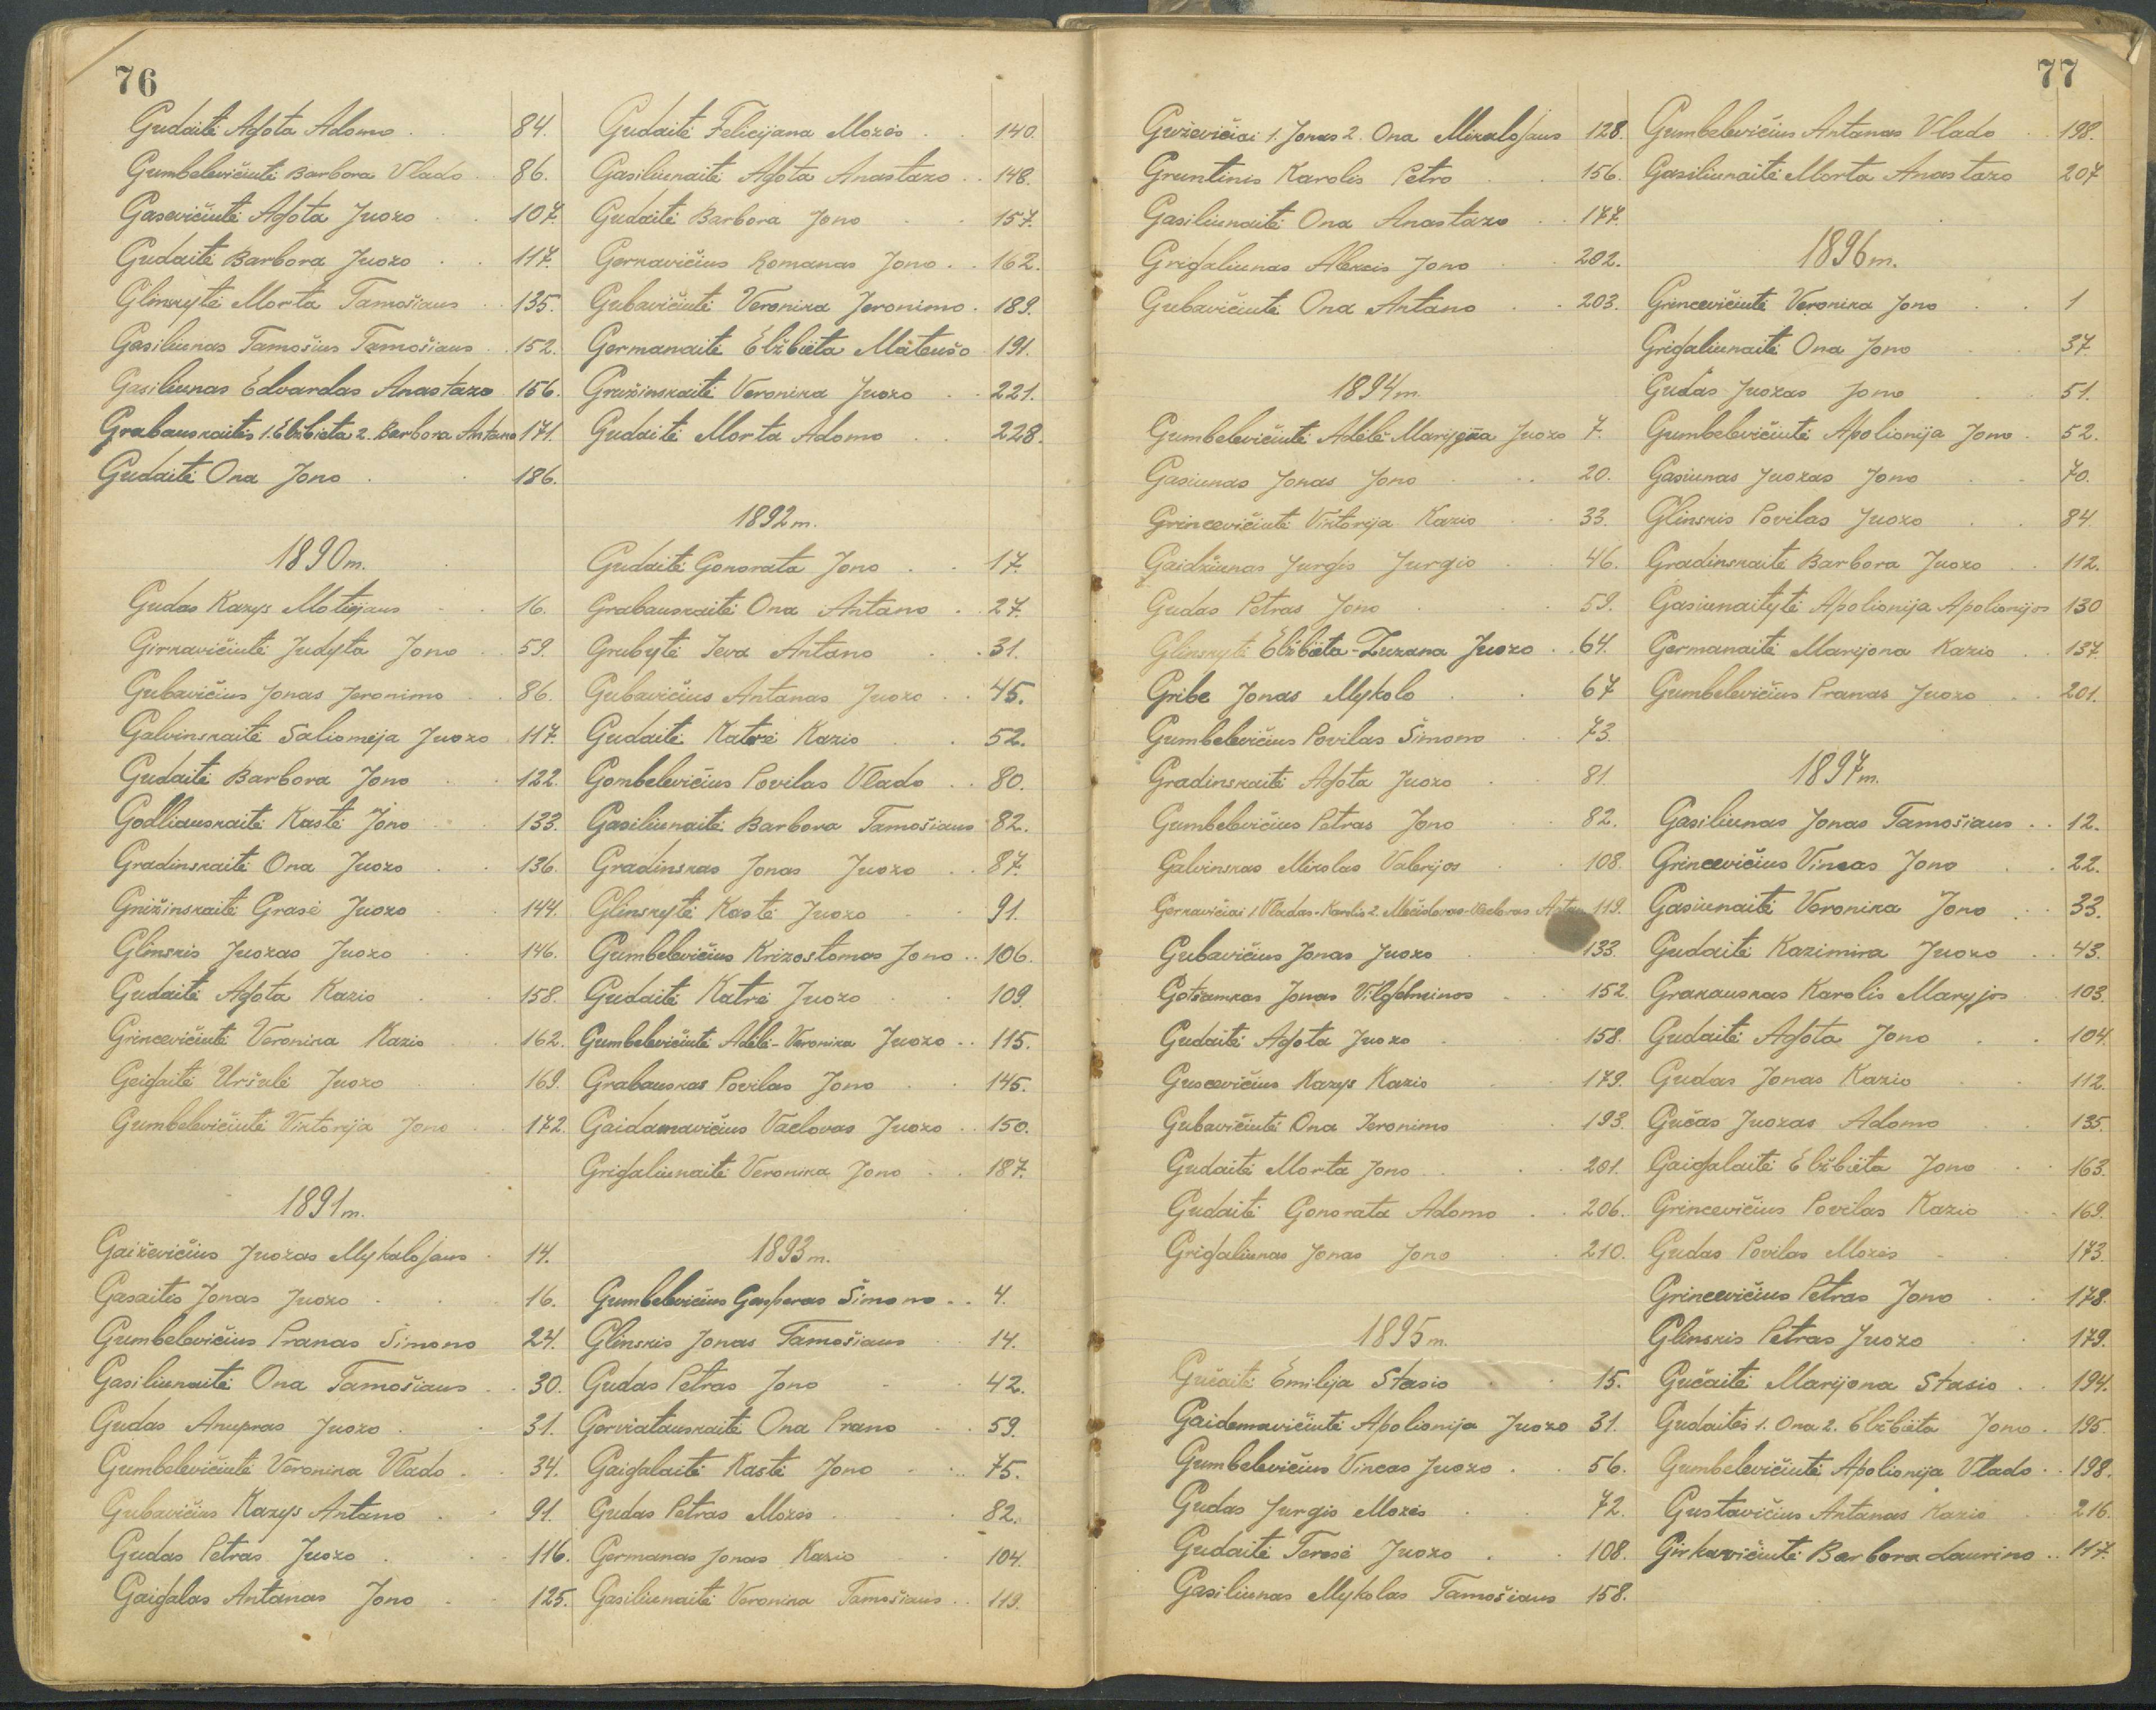 76
Gudaitė Agota Adomo 84.
Gumbelevičiutė Barbora Vlado 86.
Gasevičiutė Agota Juozo 107.
Gudaitė Barbora Juozo 117.
Glinskytė Morta Tamošiaus 135.
Gasiliunas Tamošius Tamošiaus 152.
Gasiliunas Edvardas Anastazo 156.
Grabauskaitės 1. Elžbieta 2. Barbora Antano 171.
Gudaitė Ona Jono 186.
1890 m.
Gudas Kazys Motiejaus 16.
Girkavičiutė Judyta Jono 59.
Gubavičius Jonas Jeronimo 86.
Galvinskaitė Saliomėja Juozo 117.
Gudaitė Barbora Jono 122.
Godliauskaitė Kastė Jono 133.
Gradinskaitė Ona Juozo 136.
Gnižinskaitė Grasė Juozo 144.
Glinskis Juozas Juozo 146.
Gudaitė Agota Kazio 158.
Grincevičiutė Veronika Kazio 162.
Geigaitė Uršulė Juozo 169.
Gumbelevičiutė Viktorija Jono 172.
1891 m.
Gaiževičius Juozas Mykalojaus 14.
Gasaitis Jonas Juozo 16.
Gumbelevičius Pranas Simono 24.
Gasiliunaitė Ona Tamošiaus 30.
Gudas Anupras Juozo 31.
Gumbelevičiutė Veronika Vlado 34.
Gubavičius Kazys Antano 91.
Gudas Petras Juozo 116.
Gaigalas Antanas Jono 125.
Gudaitė Felicijana Mozės 140.
Gasiliunaitė Agota Anastazo 148.
Gudaitė Barbora Jono 157.
Gerkavičius Romanas Jono 162.
Gubavičiutė Veronika Jeronimo 189.
Germanaitė Elžbieta Mateušo 191.
Gružinskaitė Veronika Juozo 221.
Gudaitė Morta Adomo 228.
1892 m.
Gudaitė Gonorata Jono 17.
Grabauskaitė Ona Antano 27.
Grubytė Ieva Antano 31.
Gubavičius Antanas Juozo 45.
Gudaitė Katrė Kazio 52.
Gombelevičius Povilas Vlado 80.
Gasiliunaitė Barbora Tamošiaus 82.
Gradinskas Jonas Juozo 87.
Glinskytė Kastė Juozo 91.
Gumbelevičius Krizostomas Jono 106.
Gudaitė Katrė Juozo 109.
Gumbelevičiutė Adėlė-Veronika Juozo 115.
Grabauskas Povilas Jono 145.
Gaidamavičius Vaclovas Juozo 150.
Grigaliunaitė Veronika Jono 187.
1893 m.
Gumbelevičius Gasparas Šimono 4.
Glinskis Jonas Tamošiaus 14.
Gudas Petras Jono 42.
Gerviatauskaitė Ona Prano 59.
Gaigalaitė Kastė Jono 75.
Gudas Petras Mozės 82.
Germanas Jonas Kazio 104.
Gasiliunaitė Veronika Tamošiaus 119.
77
Guževičiai 1. Jonas 2. Ona Mikalojaus 128.
Gruntinis Karolis Petro 156.
Gasiliunaitė Ona Anastazo 177.
Grigaliunas Aleksis Jono 202.
Gubavičiutė Ona Antano 203.
1894 m.
Gumbelevičiutė Adėlė Marijona Juozo 7.
Gasiunas Jonas Jono 20.
Grincevičiutė Viktorija Kazio 33.
Gaidžiunas Jurgis Jurgio 46.
Gudas Petras Jono 59.
Glinskytė Elžbieta-Zuzana Juozo 64.
Gribe Jonas Mykolo 67
Gumbelevičius Povilas Šimono 73.
Gradinskaitė Agota Juozo 81.
Gumbelevičius Petras Jono 82.
Galvinskas Mikolas Valerijos 108.
Gerkavičiai 1. Vladas-Karolis 2. 119.
Gubavičius Jonas Juozo 133.
Gotšamkas Jonas Vilgelminos 152.
Gudaitė Agota Juozo 158.
Guscevičius Kazys Kazio 179.
Gubavičiutė Ona Jeronimo 193.
Gudaitė Morta Jono 201.
Gudaitė Gonorata Adomo 206.
Grigaliunas Jonas Jono 210.
1895 m.
Gučaitė Emilija Stasio 15.
Gaidemavičiutė Apolionija Juozo 31.
Gumbelevičius Vincas Juozo 56.
Gudas Jurgis Mozės 72.
Gudaitė Teresė Juozo 108.
Gasiliunas Mykolas Tamošiaus 158.
Gumbelevičius Antanas Vlado 198.
Gasiliunaitė Morta Anastazo 207
1896 m.
Grincevičiutė Veronika Jono 1
Grigaliunaitė Ona Jono 37
Gudas Juozas Jono 51.
Gumbelevičiutė Apolionija Jono 52.
Gasiunas Juozas Jono 70.
Glinskis Povilas Juozo 84.
Gradinskaitė Barbora Juozo 112.
Gasiunaitytė Apolionija Apolionijos 130
Germanaitė Marijona Kazio 137.
Gumbelevičius Pranas Juozo 201.
1897 m.
Gasiliunas Jonas Tamošiaus 12.
Grincevičius Vincas Jono 22.
Gasiunaitė Veronika Jono 33.
Gudaitė Kazimira Juozo 43.
Grakauskas Karolis Maryjos 103.
Gudaitė Agota Jono 104.
Gudas Jonas Kazio 112.
Gučas Juozas Adomo 135.
Gaigalaitė Elžbieta Jono 163.
Grincevičius Povilas Kazio 169.
Gudas Povilas Mozės 173.
Grincevičius Petras Jono 178.
Glinskis Petras Juozo 179.
Gučaitė Marijona Stasio 194.
Gudaitės 1. Ona 2. Elžbieta Jono 195.
Gumbelevičiutė Apolionija Vlado 198.
Gustavičius Antanas Kazio 216.
Girkavičiutė Barbora Laurino 117.